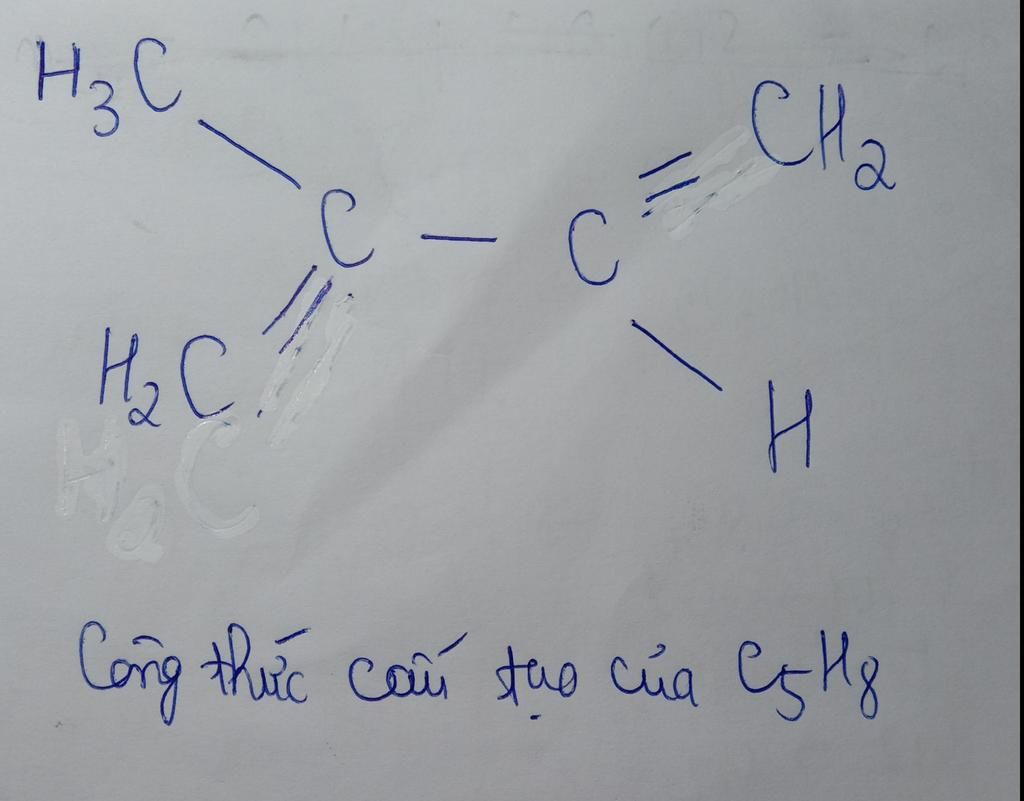 H3C
CH2
C — C
H2C
H
Công thức cấu tạo của C5H8